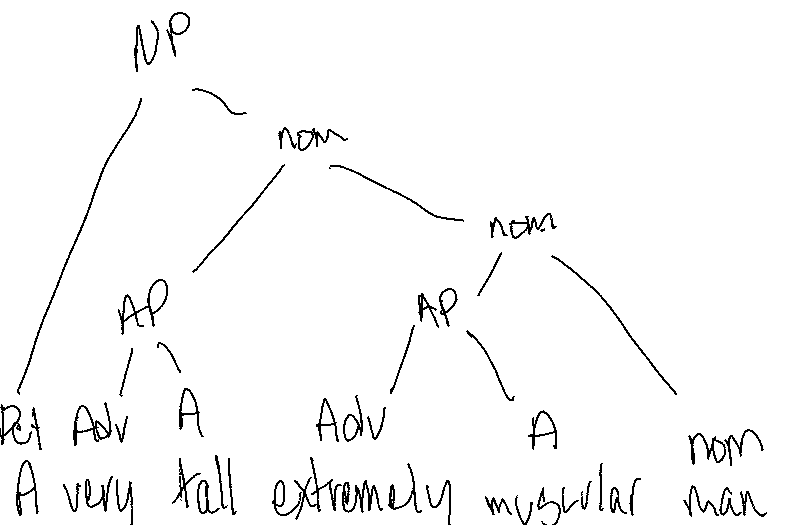 NP
nom
nom
AP AP
Det Adv A Adv A nom
A very tall extremely muscular man